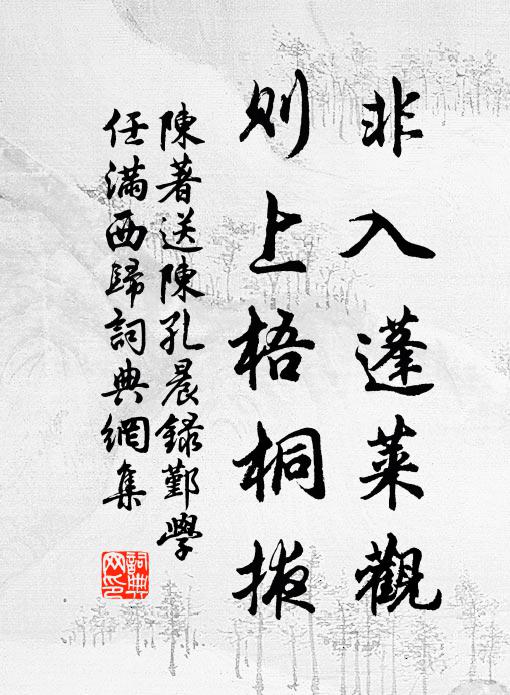 非入蓬萊觀
則上梧桐掖
陳著送陳孔晨錄鄞學
任滿西歸詞典網集
詞典网印